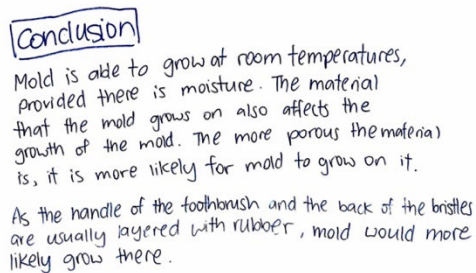 Conclusion
Mold is able to grow at room temperatures,
provided there is moisture. The material
that the mold grows on also affects the
growth of the mold. The more porous the material
is, it is more likely for mold to grow on it.
As the handle of the toothbrush and the back of the bristles
are usually layered with rubber, mold would more
likely grow there.